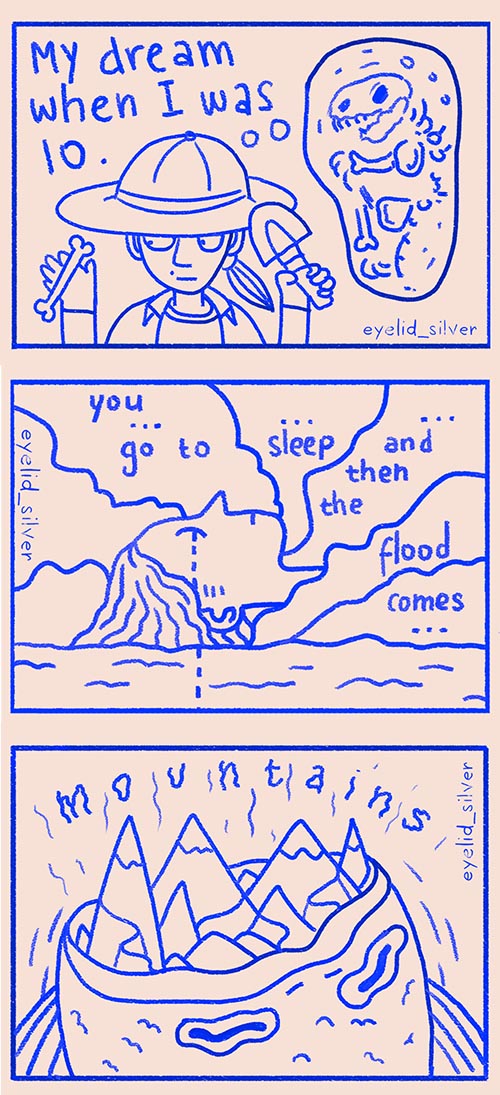 My dream
when I was
10.
eyelid_silver
you
...
go to
...
sleep
...
and
then
the
flood
comes
...
eyelid_silver
mountains
eyelid_silver